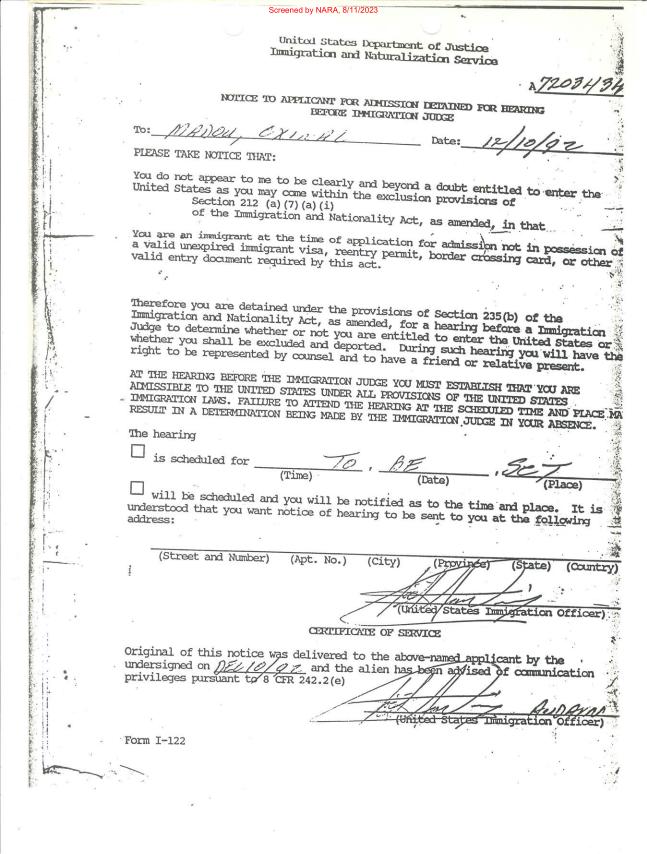 Screened by NARA, 8/11/2023
United States Department of Justice
Immigration and Naturalization Service
A7203434
NOTICE TO APPLICANT FOR ADMISSION DETAINED FOR HEARING
BEFORE IMMIGRATION JUDGE
To: Date: 12/10/92
PLEASE TAKE NOTICE THAT:
You do not appear to me to be clearly and beyond a doubt entitled to enter the
United States as you may come within the exclusion provisions of
Section 212 (a)(7)(a)(i)
of the Immigration and Nationality Act, as amended, in that
You are an immigrant at the time of application for admission not in possession of
a valid unexpired immigrant visa, reentry permit, border crossing card, or other
valid entry document required by this act.
Therefore you are detained under the provisions of Section 235(b) of the
Immigration and Nationality Act, as amended, for a hearing before a Immigration
Judge to determine whether or not you are entitled to enter the United States or
whether you shall be excluded and deported. During such hearing you will have the
right to be represented by counsel and to have a friend or relative present.
AT THE HEARING BEFORE THE IMMIGRATION JUDGE YOU MUST ESTABLISH THAT YOU ARE
ADMISSIBLE TO THE UNITED STATES UNDER ALL PROVISIONS OF THE UNITED STATES
IMMIGRATION LAWS. FAILURE TO ATTEND THE HEARING AT THE SCHEDULED TIME AND PLACE MA
RESULT IN A DETERMINATION BEING MADE BY THE IMMIGRATION JUDGE IN YOUR ABSENCE.
The hearing
is scheduled for TO BE SET
(Time) (Date) (Place)
will be scheduled and you will be notified as to the time and place. It is
understood that you want notice of hearing to be sent to you at the following
address:
(Street and Number) (Apt. No.) (City) (Province) (State) (Country)
(United States Immigration Officer)
CERTIFICATE OF SERVICE
Original of this notice was delivered to the above-named applicant by the
undersigned on DEC 10/92 and the alien has been advised of communication
privileges pursuant to 8 CFR 242.2(e)
(United States Immigration Officer)
Form I-122